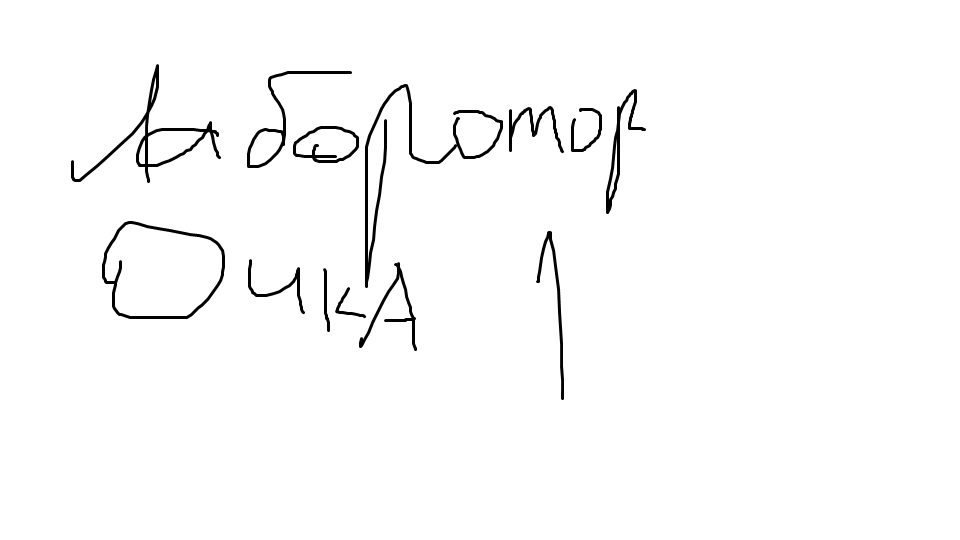 Лабораотор
Очка 1